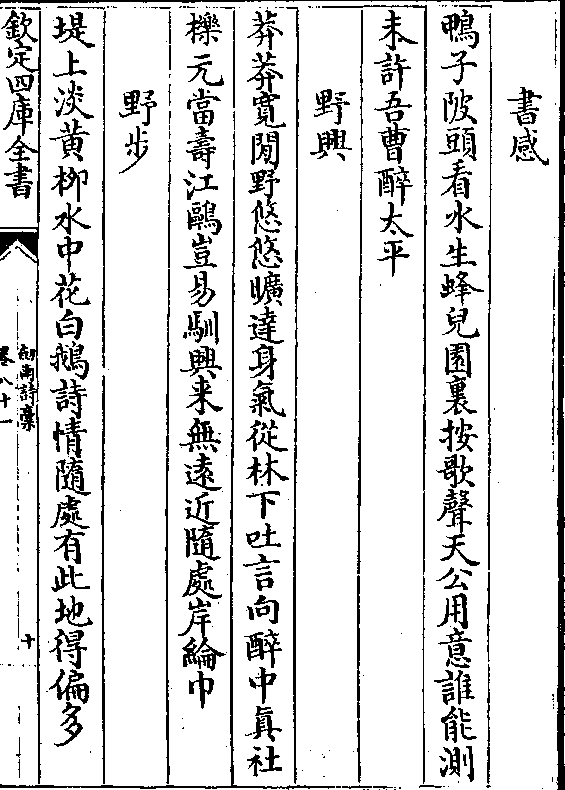 書感
鴨子陂頭看水生蜂兒園裏按歌聲天公用意誰能測
未許吾曹醉太平
野興
莽莽寬閒野悠悠曠達身氣從林下吐言向醉中真社
櫟元當壽江鷗豈易馴興来無遠近隨處岸綸巾
野步
堤上淡黄柳水中花白鵝詩情隨處有此地得偏多
欽定四庫全書
劍南詩稾
卷八十一
十